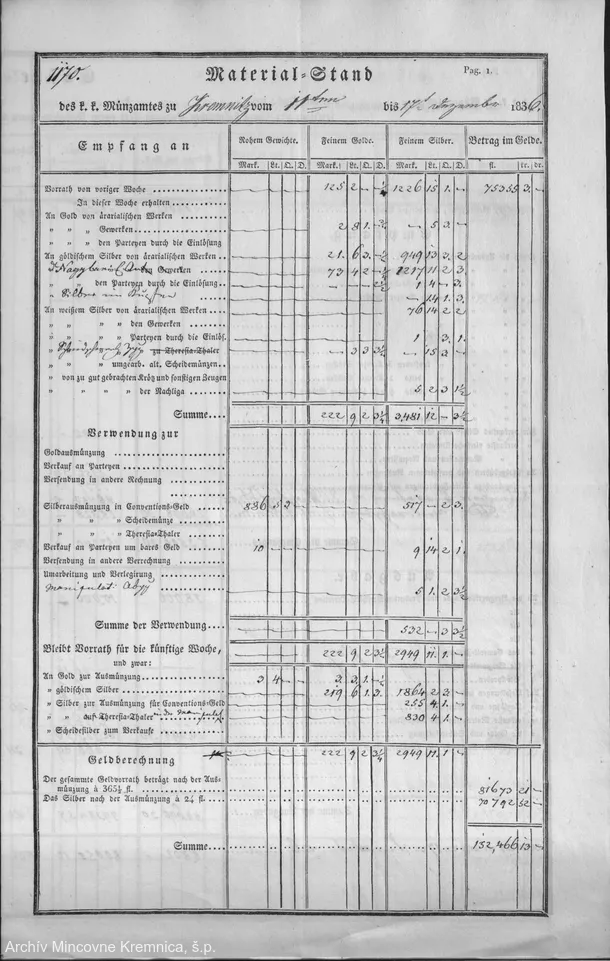 1170.
Material-Stand
Pag. 1.
des k. k. Münzamtes zu Kremnitz vom 11ten bis 17t Dezember 1836.
Empfang an
Rohem Gewichte. Feinem Golde. Feinem Silber. Betrag im Gelde.
Mark. Lt. Q. D. Mark. Lt. Q. D. Mark. Lt. Q. D. fl. kr. dr.
Vorrath von voriger Woche 125 2 — 1226 15 1. — 75355 3. —
In dieser Woche erhalten
An Gold von ärarialischen Werken
„ „ „ Gewerken 2 8 1. — 5 2 —
„ „ „ den Parteyen durch die Einlösung
An göldischem Silber von ärarialischen Werken 21. 6 3. 949 13 3. 2
Gewerken 73 4 2 — 1217 11 2 3.
„ „ den Parteyen durch die Einlösung 1 4 — 3.
„ Silber — 14 1. 3.
An weißem Silber von ärarialischen Werken 76 14 2 2
„ „ „ den Gewerken
„ „ „ Parteyen durch die Einlös. 1 3. 1.
„ zu Theresia-Thaler — 3 3 3½ — 15 3 —
„ „ umgearb. alt. Scheidemünzen
„ von zu gut gebrachten Krätz und sonstigen Zeugen
„ „ „ „ der Nachliga 5 2 3 1½
Summe 222 9 2 3¼ 3,481 12 — 3½
Verwendung zur
Goldausmünzung
Verkauf an Parteyen
Versendung in andere Rechnung
Silberausmünzung in Conventions-Geld 836 5 2 517 — 2 3.
„ „ „ Scheidemünze
„ „ „ Theresia-Thaler
Verkauf an Parteyen um bares Geld 10 9 14 2 1.
Versendung in andere Verrechnung
Umarbeitung und Verlegirung
5 1. 2 3½
Summe der Verwendung 532 — 3 3½
Bleibt Vorrath für die künftige Woche, 222 9 2 3¼ 2949 11. 1. —
und zwar:
An Gold zur Ausmünzung 3 4 — 3. 3. 1.
„ göldischem Silber 219 6 1. 3. 1864 2 3 —
„ Silber zur Ausmünzung für Conventions-Geld 255 4. 1. —
„ „ auf Theresia-Thaler 830 4 1. —
„ Scheidesilber zum Verkaufe
Geldberechnung 222 9 2 3¼ 2949 11. 1 —
Der gesammte Geldvorrath beträgt nach der Aus-
münzung à 365½ fl. 81673 21 —
Das Silber nach der Ausmünzung à 24 fl. 70792 52 —
Summe 152,466 13 —
Archív Mincovne Kremnica, š.p.